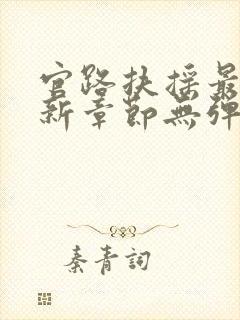 官路扶摇最
新章節無彈
秦青詞